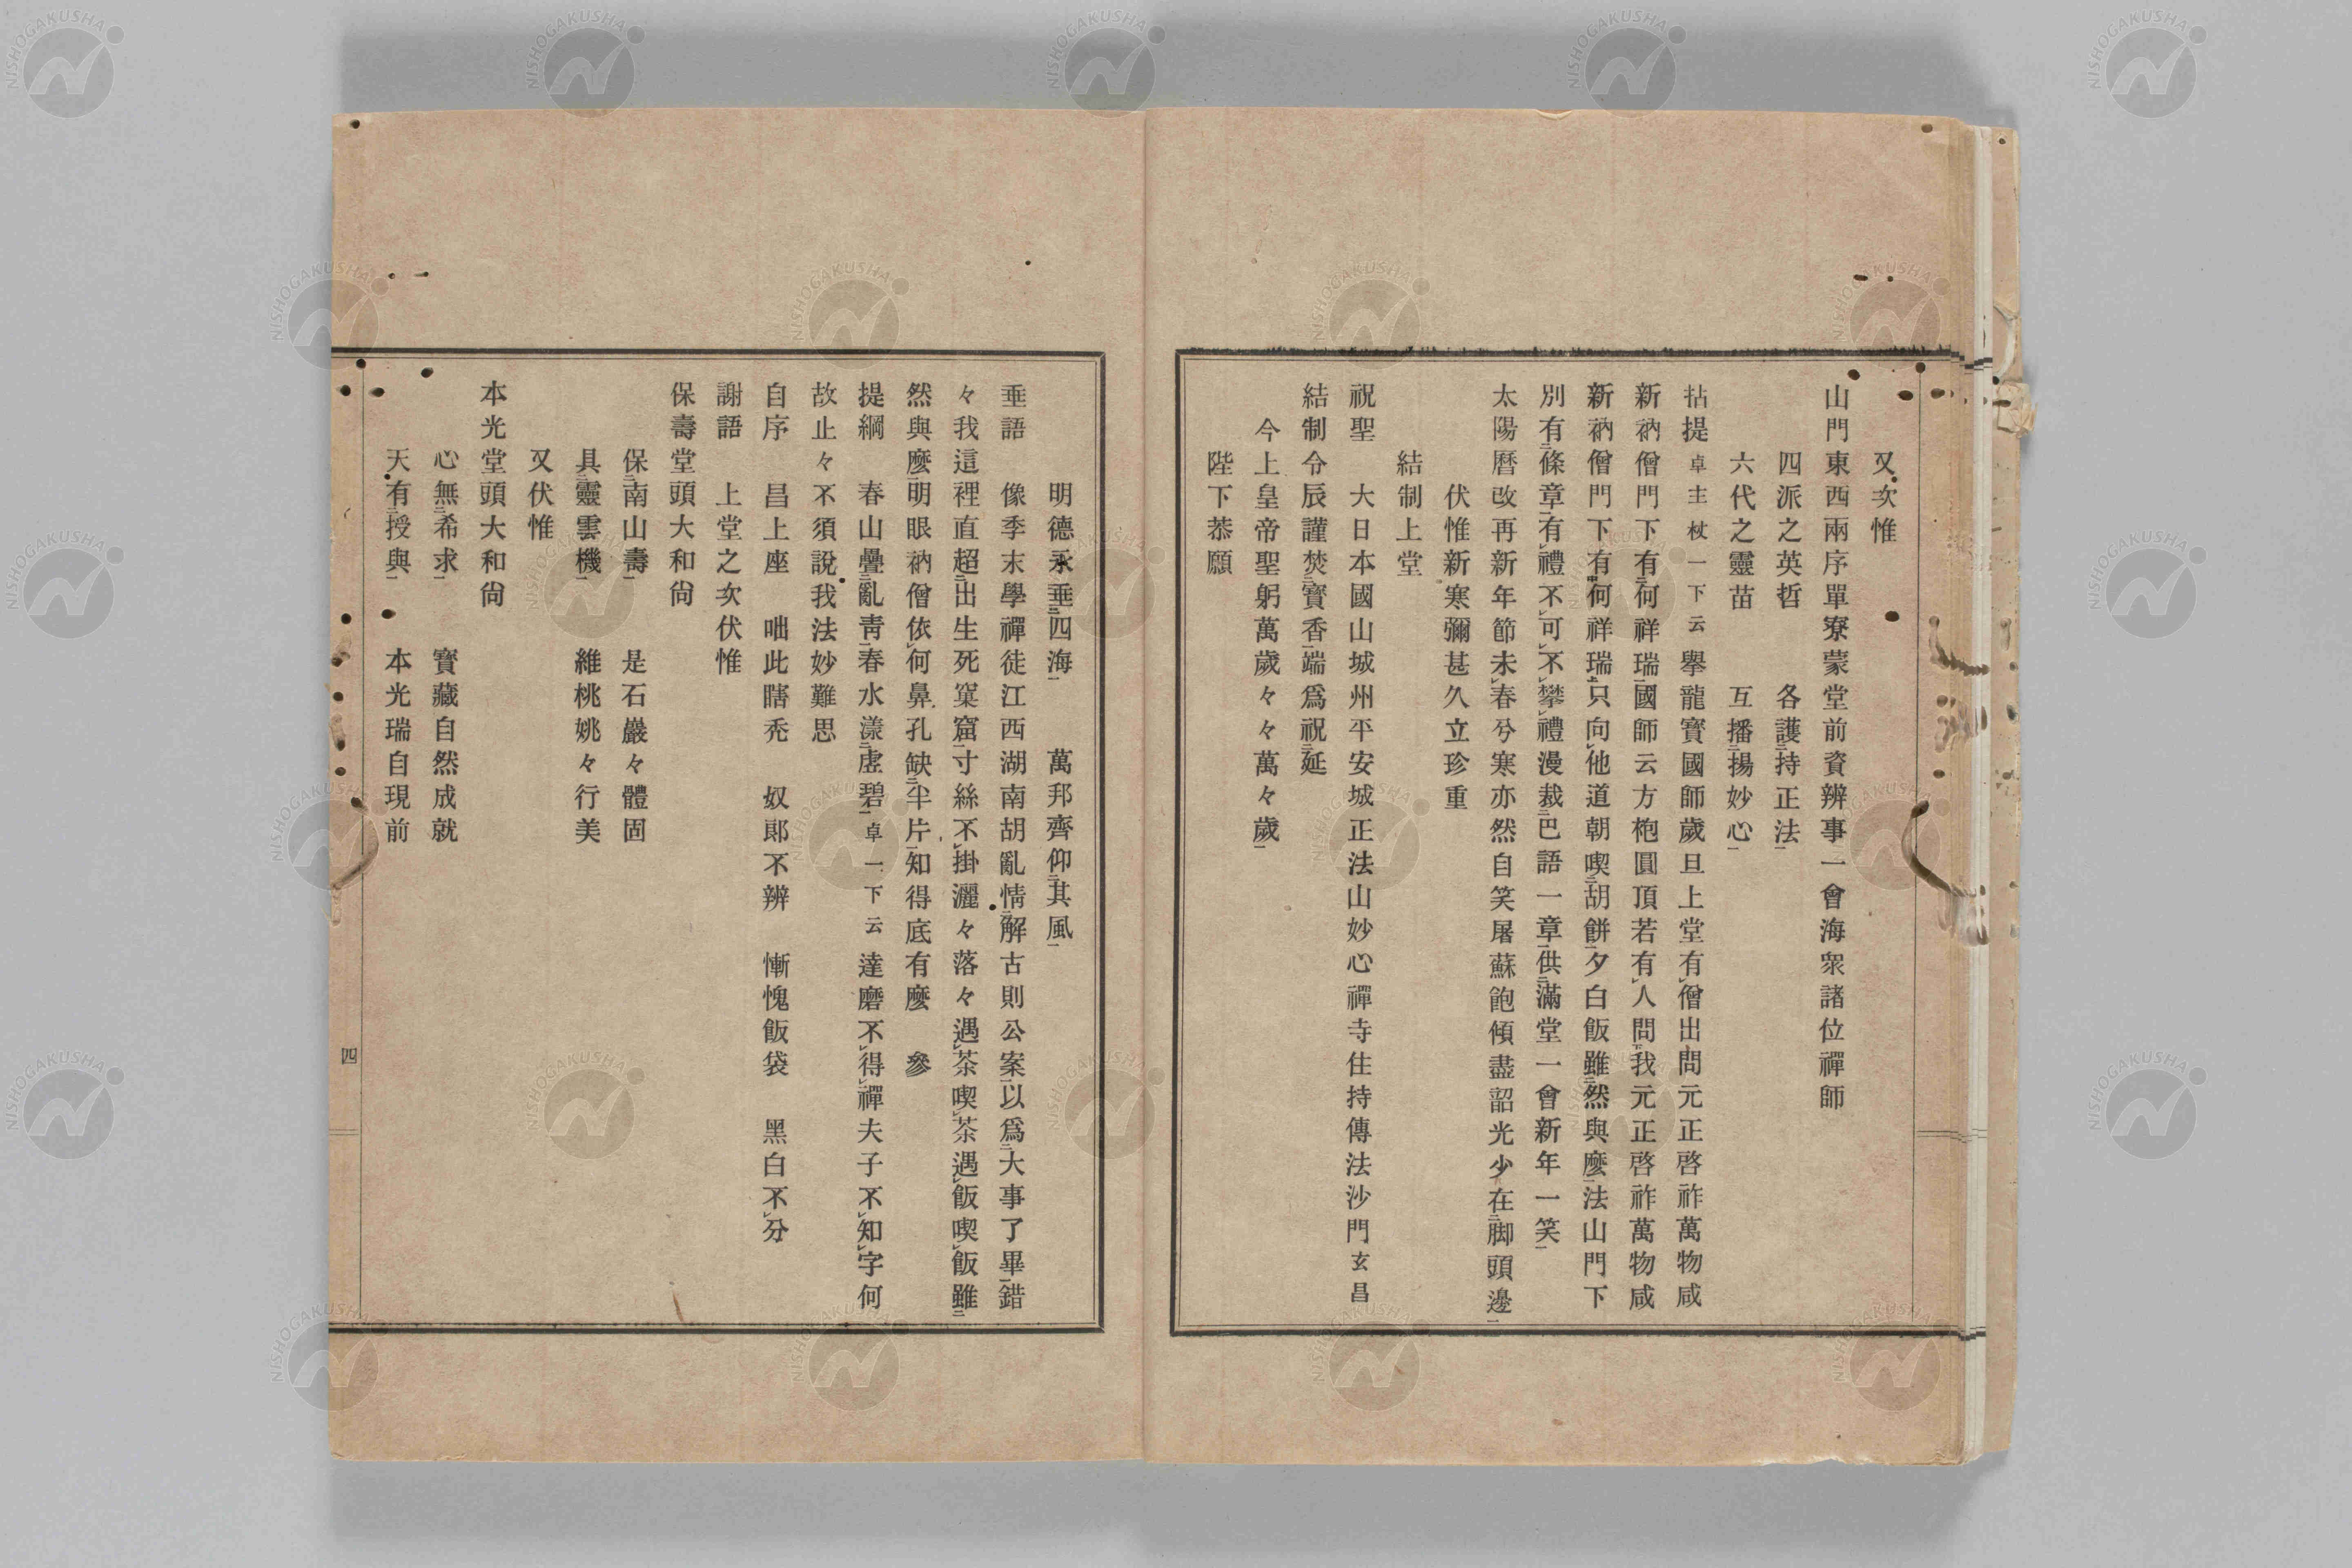 又次惟
山門東西兩序單寮蒙堂前資辨事一會海衆諸位禪師
四派之英哲　各護二持正法一
六代之靈苗　互播二揚妙心一
拈提卓主杖一下云擧龍寶國師歲旦上堂有レ僧出問元正啓祚萬物咸
新衲僧門下有二何祥瑞一國師云方袍圓頂若有レ人問下我元正啓祚萬物咸
新衲僧門下有中何祥瑞上只向レ他道朝喫二胡餅一夕白飯雖二然與麼一法山門下
別有二條章一有レ禮不レ可レ不レ攀レ禮漫裁二巴語一章一供二滿堂一會新年一笑一
太陽曆改再新年節未レ春兮寒亦然自笑屠蘇飽傾盡韶光少在二脚頭邊一
伏惟新寒彌甚久立珍重
結制上堂
祝聖　大日本國山城州平安城正法山妙心禪寺住持傳法沙門玄昌
結制令辰謹焚二寶香一端爲祝二延
今上皇帝聖躬萬歲々々萬々歲一
陛下恭願
明德永垂二四海一　萬邦齊仰二其風一
垂語　像季末學禪徒江西湖南胡亂情二解古則公案一以爲二大事了畢一錯
々我這裡直超二出生死窠窟一寸絲不レ掛灑々落々遇レ茶喫レ茶遇レ飯喫レ飯雖二
然與麼一明眼衲僧依レ何鼻孔缺二半片一知得底有麼　參
提綱　春山疊二亂靑一春水漾二虛碧一卓一下云達磨不レ得レ禪夫子不レ知レ字何
故止々不須說我法妙難思
自序　昌上座　咄此瞎禿　奴郞不辨　慚愧飯袋　黑白不レ分
謝語　上堂之次伏惟
保壽堂頭大和尙
保二南山壽一　是石巖々體固
具二靈雲機一　維桃姚々行美
又伏惟
本光堂頭大和尙
心無二希求一　寳藏自然成就
天有二授與一　本光瑞自現前
四
NISHOGAKUSHA